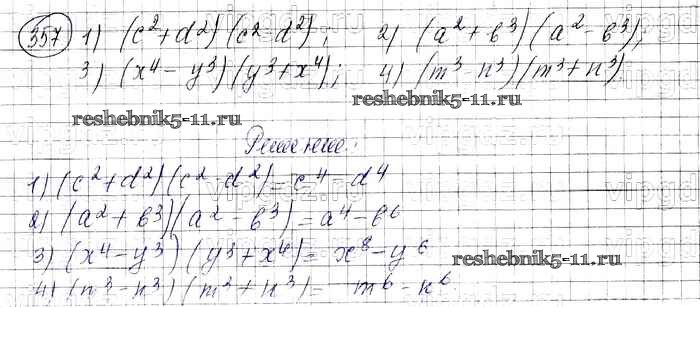 357 1) (c²+d²)(c²-d²); 2) (a²+b³)(a²-b³);
3) (x⁴-y³)(y³+x⁴); 4) (m³-n³)(m³+n³)
reshebnik5-11.ru reshebnik5-11.ru
Решение:
1) (c²+d²)(c²-d²)=c⁴-d⁴
2) (a²+b³)(a²-b³)=a⁴-b⁶
3) (x⁴-y³)(y³+x⁴)= x⁸-y⁶
reshebnik5-11.ru
4) (m³-n³)(m³+n³)= m⁶-n⁶